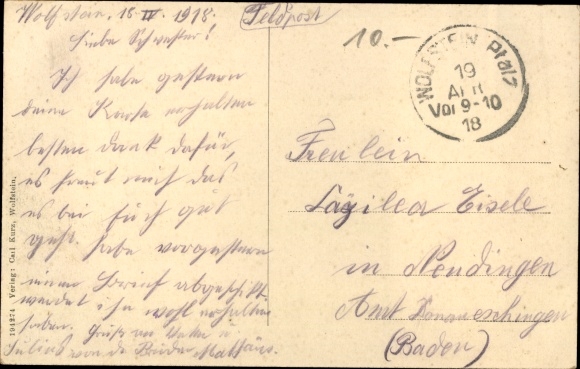 Wolfstein, 18.IV.1918.
Feldpost
Liebe Schwester!
Ich habe gestern
deine Karte erhalten
besten dank dafür,
es freut mich das
es bei Euch gut
geht. habe vorgestern
einen Brief abgeschikt
werdet ihn wohl erhalten
haben. Gruß an Vater u.
Julius von da Bruder Mathäus.
10.-
WOLFSTEIN Pfalz
19
APR
Vor 9-10
18
Freulein
Cäzilea Eisele
in Neudingen
Amt Donaueschingen
(Baden)
194274 Verlag: Carl Kurz, Wolfstein.